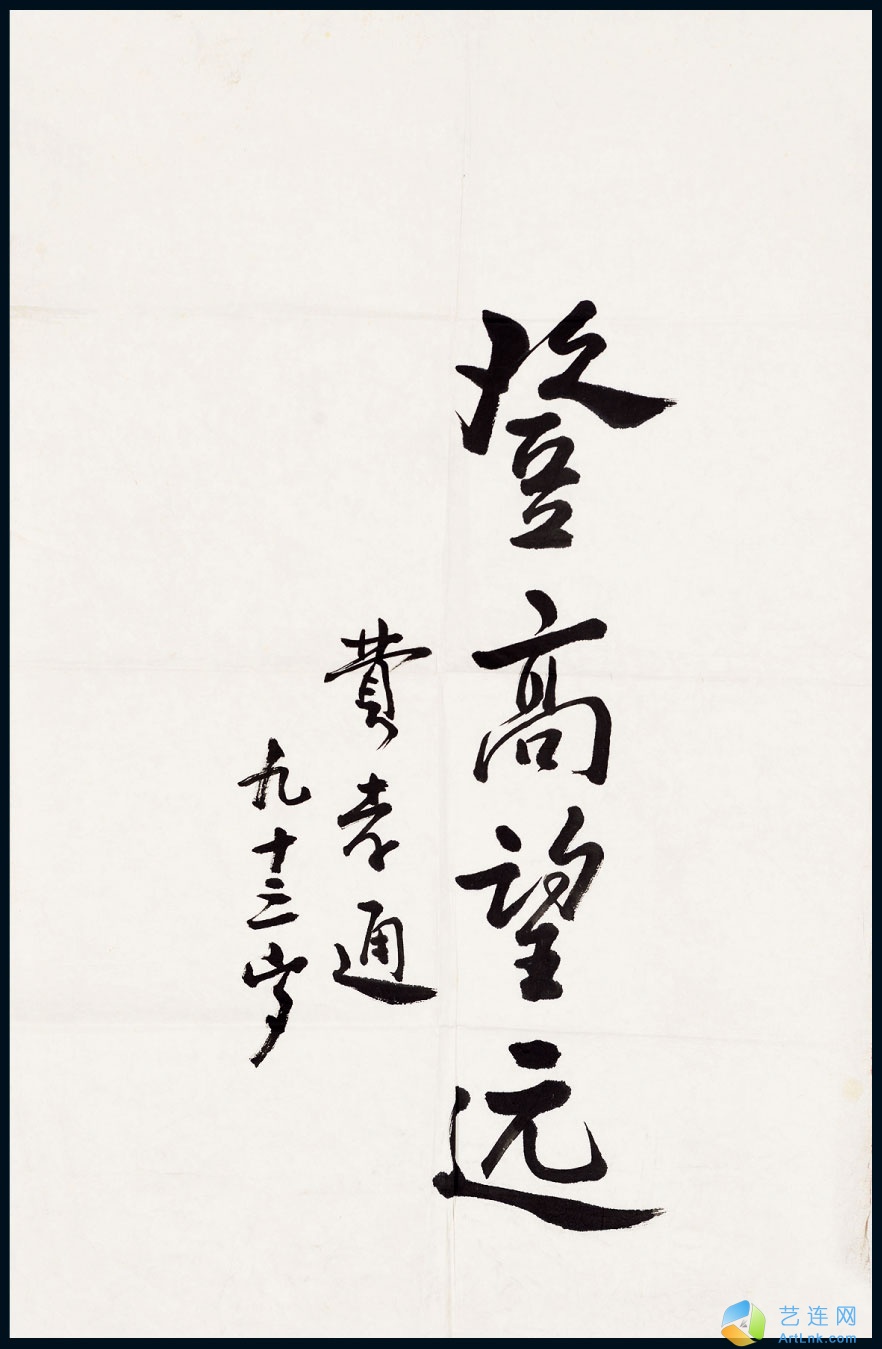 登高望远
費孝通
九十三岁
艺连网
ArtLnk.com